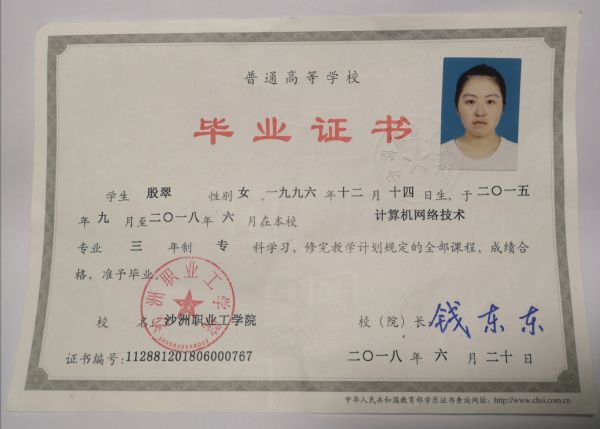 普通高等学校
毕业证书
学生 殷翠 性别 女,一九九六年 十二 月 十四 日生,于 二〇一五
年 九 月至 二〇一八 年 六 月在本校 计算机网络技术
专业 三 年制 专 科学习,修完教学计划规定的全部课程,成绩合
格,准予毕业。
沙洲职业工学院
校 名:沙洲职业工学院 校(院)长:钱东东
证书编号:112881201806000767 二〇一八 年 六 月 二十 日
中华人民共和国教育部学历证书查询网址:http://www.chsi.com.cn